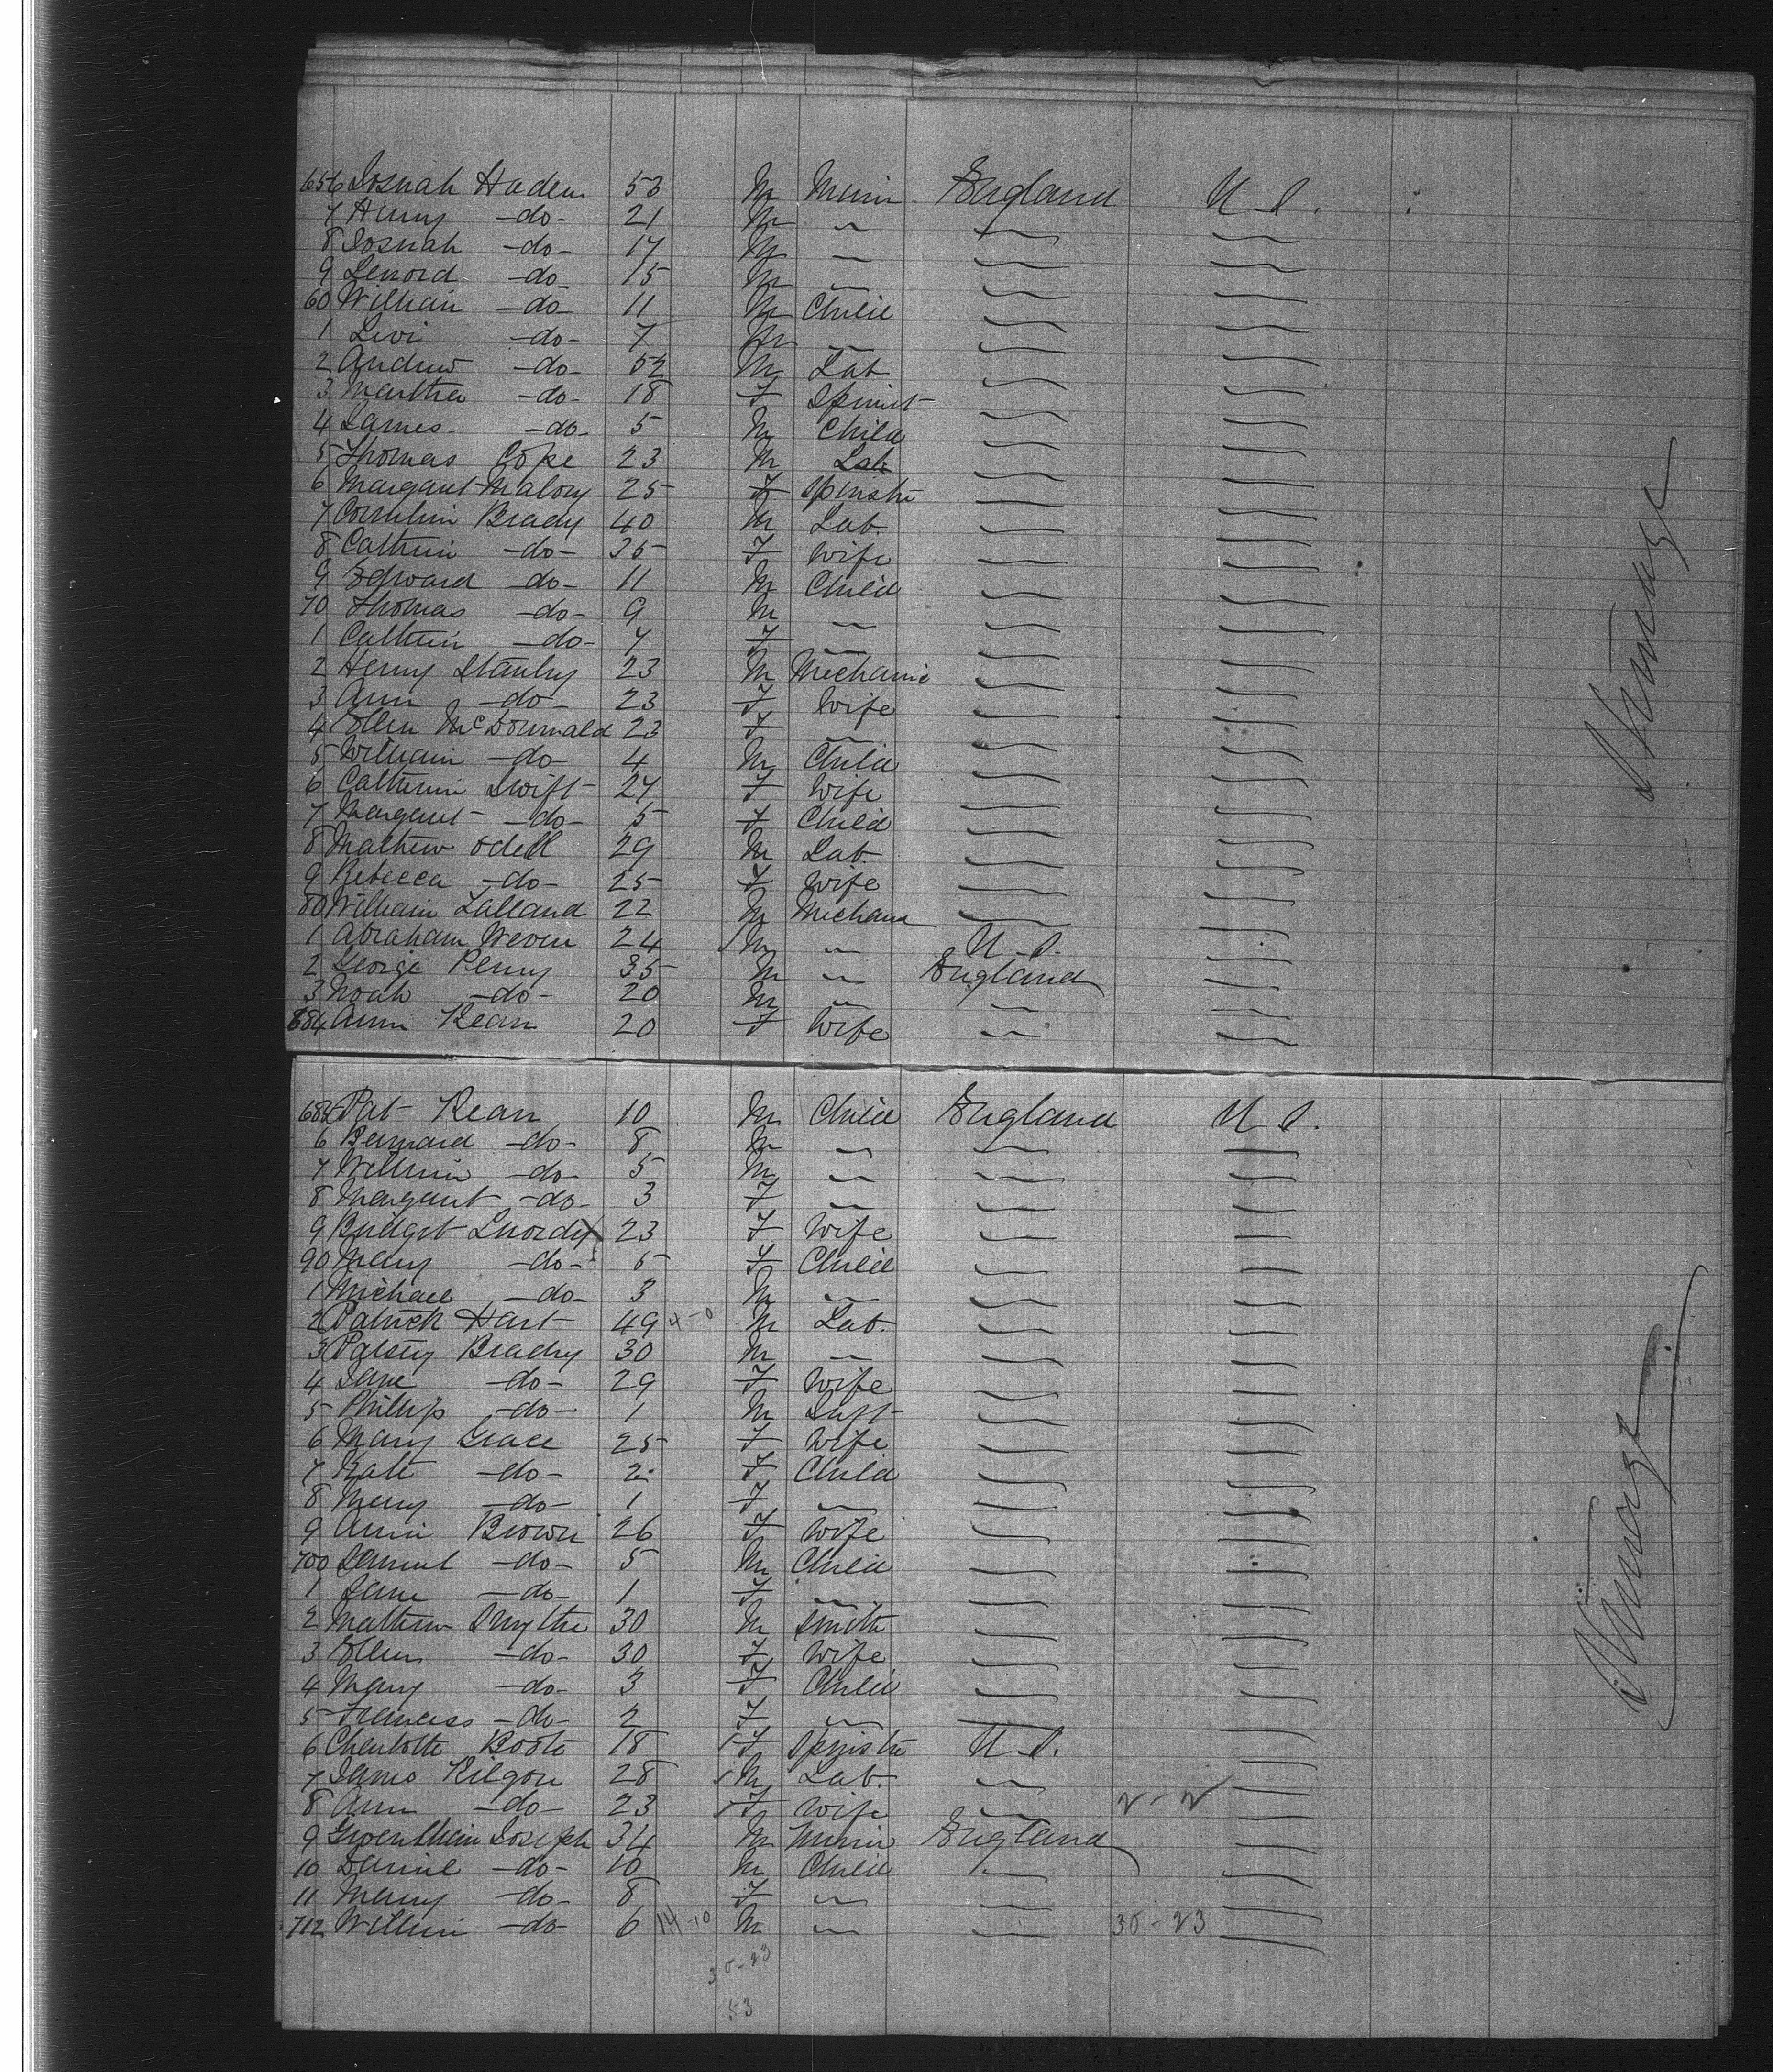 656 Josuah Haden 53 M Minin England U S.
7 Henry -do- 21 M " " "
8 Josuah -do- 17 M " " "
9 Lenord -do- 15 M " " "
60 William -do- 11 M Child " "
1 Levi -do- 7 M " " "
2 Andrew -do- 52 M Lab " "
3 Martha -do- 18 F Spinst " "
4 James -do- 5 M Child " "
5 Thomas Cope 23 M Lab " "
6 Margaret Malory 25 F Spinstr " "
7 Brady 40 M Lab. " "
8 Cathrin -do- 35 F Wife " "
9 Edward -do- 11 M Child " "
70 Thomas -do- 9 M " " "
1 Cathrin -do- 7 F " " "
2 Henry Stanly 23 M Mechanic " "
3 Ann -do- 23 F Wife " "
4 Ellen McDonnald 23 F " " "
5 William -do- 4 M Child " "
6 Catherin Swift 27 F Wife " "
7 Margaret -do- 5 F Child " "
8 Mathew Odell 29 M Lab " "
9 Rebecca -do- 25 F Wife " "
80 William Lalland 22 M Mechani " "
1 Abraham Weven 24 M " U.S. "
2 George Penny 35 M " England "
3 Noah -do- 20 M " " "
684 Ann Kean 20 F Wife " "
685 Pat Kean 10 M Child England U S.
6 Bernard -do- 8 M " " "
7 William -do- 5 M " " "
8 Margaret -do- 3 F " " "
9 Bridget 23 F Wife " "
90 Mary -do- 5 F Child " "
1 Michael -do- 3 M " " "
2 Patrick Hart 49 4-0 M Lab. " "
3 Patsey Brady 30 M " " "
4 Jane -do- 29 F Wife " "
5 Phillip -do- 1 M Inft " "
6 Mary Grace 25 F Wife " "
7 Kate -do- 2 F Child " "
8 Mary -do- 1 F " " "
9 Ann Brown 26 F Wife " "
700 Samuel -do- 5 M Child " "
1 Jane -do- 1 F " " "
2 Mathew Smythe 30 M Smith " "
3 Ellen -do- 30 F Wife " "
4 Mary -do- 3 F Child " "
5 Francess -do- 2 F " " "
6 Charlotte Boote 18 F Spinstr U.S. "
7 James Kilgore 28 M Lab. " "
8 Ann -do- 23 F Wife " "
9 Gwenthein Joseph 34 M Minin England "
10 Daniel -do- 10 M Child " "
11 Mary -do- 8 F " " "
712 William -do- 6 14-10 M " " 30-23 "
30-23
53